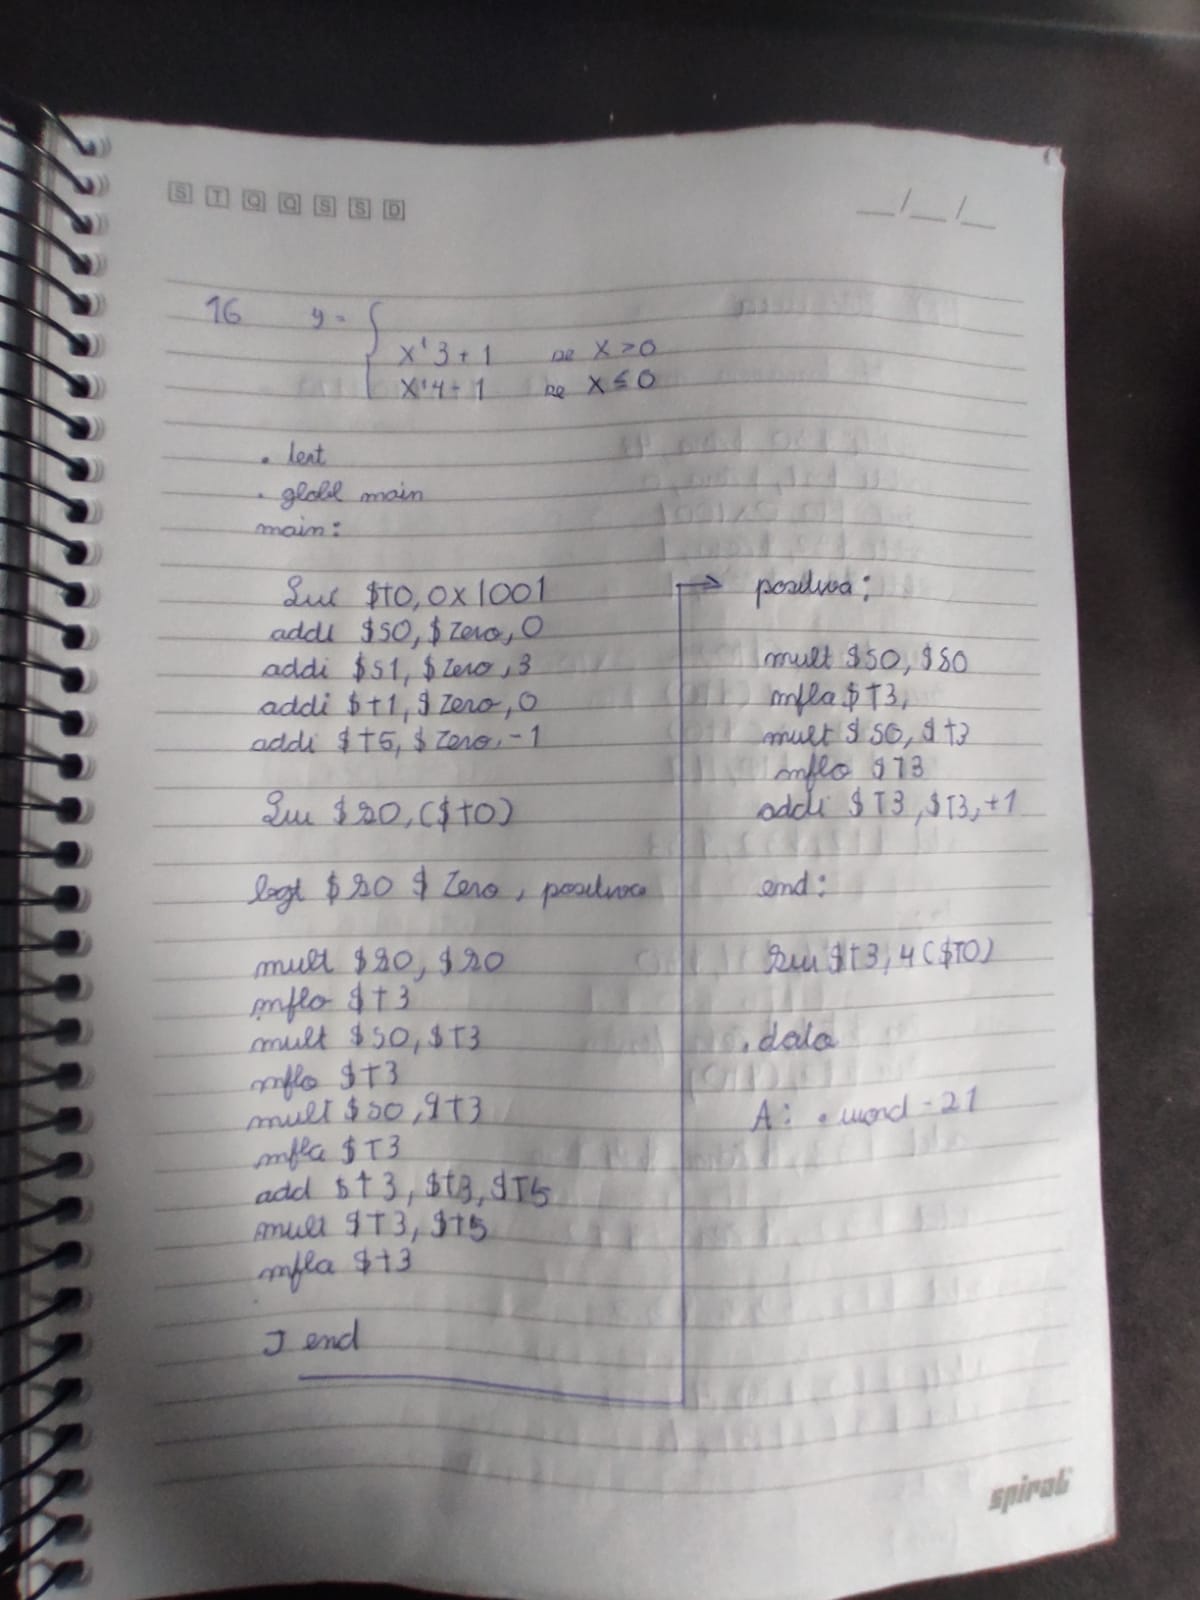 S T Q Q S S D
__/__/__
16 y = {
x'3 + 1 se x > 0
x'4 - 1 se x ≤ 0
. text
. globl main
main:
Lui $t0, 0x1001
addi $s0, $zero, 0
addi $s1, $zero, 3
addi $t1, $zero, 0
addi $t5, $zero, -1
Lw $s0, ($t0)
bgt $s0 $zero, positivo
mult $s0, $s0
mflo $t3
mult $s0, $t3
mflo $t3
mult $s0, $t3
mflo $t3
add $t3, $t3, $t5
mult $t3, $t5
mflo $t3
J end
positivo:
mult $s0, $s0
mflo $t3,
mult $s0, $t3
mflo $t3
addi $t3, $t3, +1
end:
sw $t3, 4($t0)
. data
A: . word -21
spiral